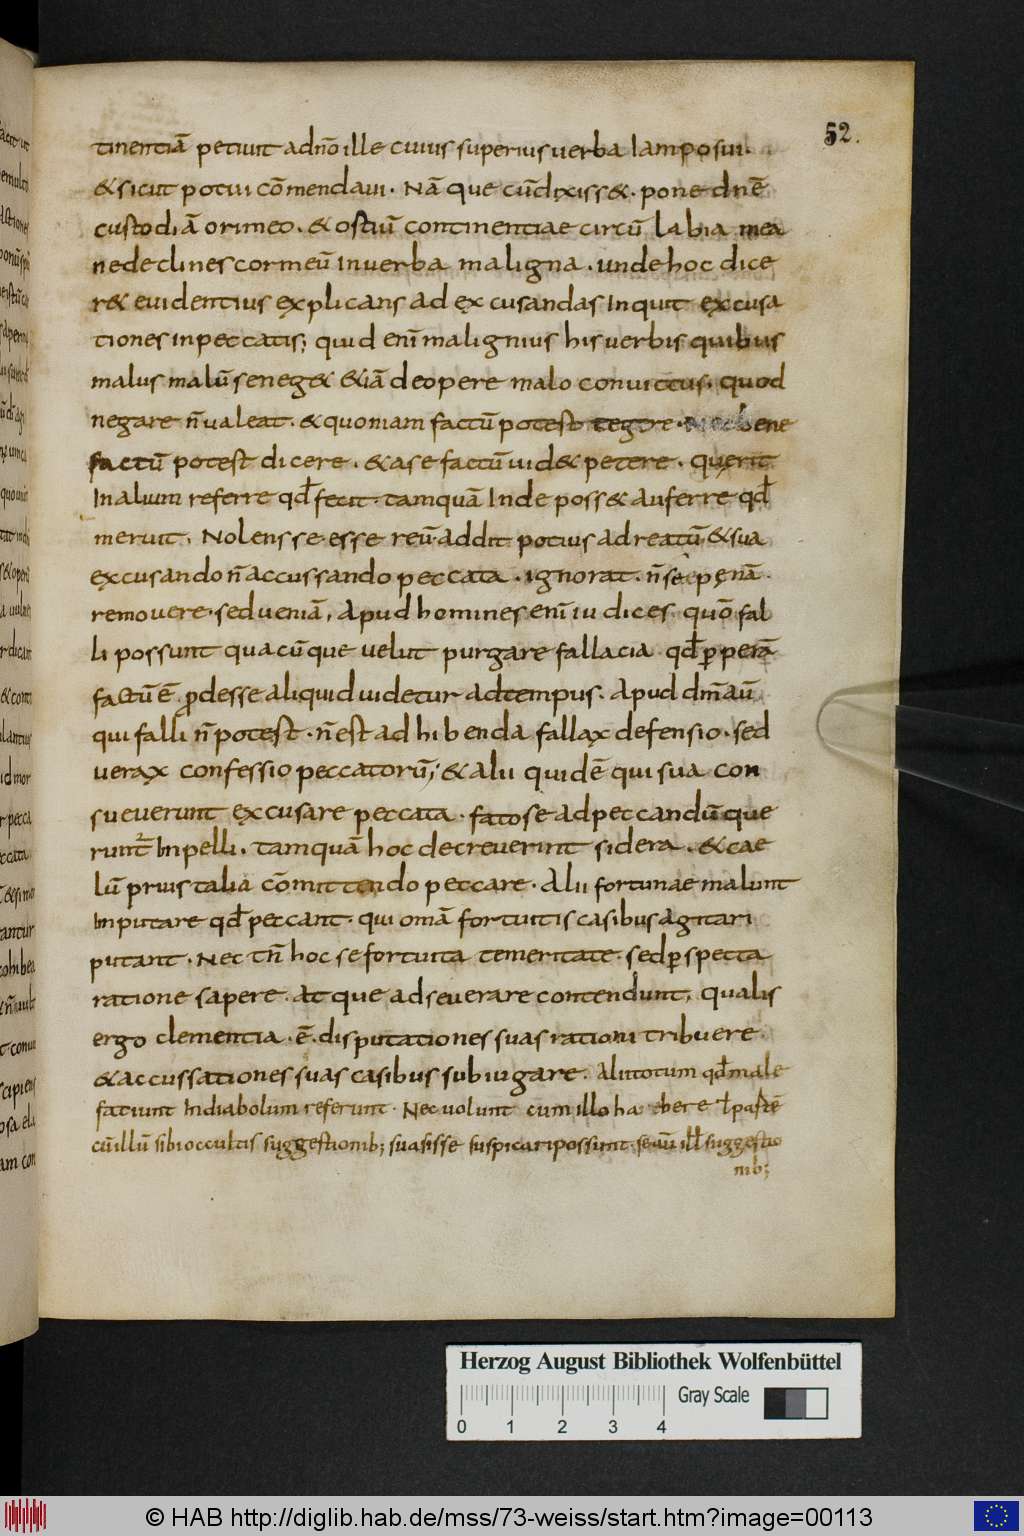 52.
tinentiā petiuit adn̄o ille cuius superius uerba iam posui.
& sicut potui cōmendaui. Nā que cūdixiss&. pone dn̄ē
custodiā orimeo. & ostiū continentiae circū labia mea
nedeclinescormeū inuerba maligna. unde hoc dice
r& euidentius explicans ad excusandas inquit excusa
tiones inpeccatis; quid enī malignius his uerbis quibus
malus malū seneg& &iā deopere malo conuictus. quod
negare n̄ualeat. & quoniam factū potest tegere. bene
factū potest dicere. & a se factū uid& petere. querit
In alium referre qđ fecit. tamquā Inde poss& auferre qđ
meruit. Nolens se esse reū addit potius ad reatū & sua
excusando n̄ accussando peccata. ignorat. n̄ se penā.
remouere. sed ueniā. Apud homines enī iudices quō fal
li possunt quacūque uelut purgare fallacia qđ ꝑperā
factū ē ꝓdesse aliquid uidetur adtempus. Apud dm̄ aū
qui falli n̄ potest. n̄ est adhibenda fallax defensio. sed
uerax confessio peccatorū; & alii quidē qui sua con
sueuerunt excusare peccata. fato se adpeccandū que
runt Inpelli. tamquā hoc decreuerint sidera. & cae
lū prius talia cōmittendo peccare. Alii fortunae malunt
Inputare qđ peccant. qui omā fortuitis casibus agitari
putant. Nec tn̄ hoc se fortuita temeritate. sed ꝑspecta
ratione sapere. At que adseuerare contendunt. qualis
ergo clementia. ē. disputationes suas rationi tribuere.
& accussationes suas casibus subiugare. Alii totum qđ male
fatiunt Indiabolum referunt. Nec uolunt cum illo habere ł partē
cū illū sibi occultis suggestionib; suasisse suspicari possunt. se aū illi suggestio
nib;
Herzog August Bibliothek Wolfenbüttel
Gray Scale
0 1 2 3 4
© HAB http://diglib.hab.de/mss/73-weiss/start.htm?image=00113